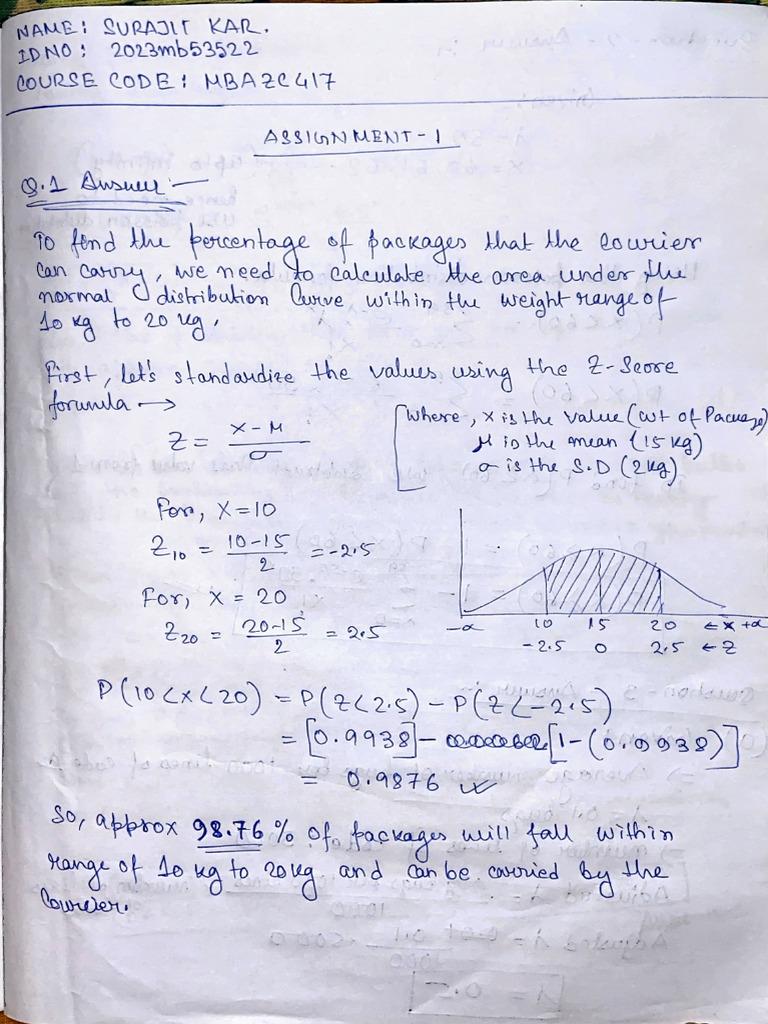 NAME: SURAJIT KAR.
ID NO: 2023mb53522
COURSE CODE: MBAZC417
ASSIGNMENT-1
Q.1 Answer:-
To find the percentage of packages that the courier
can carry, we need to calculate the area under the
normal distribution Curve within the weight range of
10 kg to 20 kg.
First, let's standardize the values using the Z-Score
forumla →
Z = (X-μ)/σ
[where, X is the value (wt of Package)
μ is the mean (15 kg)
σ is the S.D (2kg)
For, X=10
Z₁₀ = (10-15)/2 = -2.5
For, X = 20
Z₂₀ = (20-15)/2 = 2.5
-α 10 15 20 ←X +α
-2.5 0 2.5 ←Z
P(10<X<20) = P(Z<2.5) - P(Z<-2.5)
= [0.9938] - [1-(0.9938)]
= 0.9876
So, approx 98.76 % of packages will fall within
range of 10 kg to 20kg and can be carried by the
Courier.